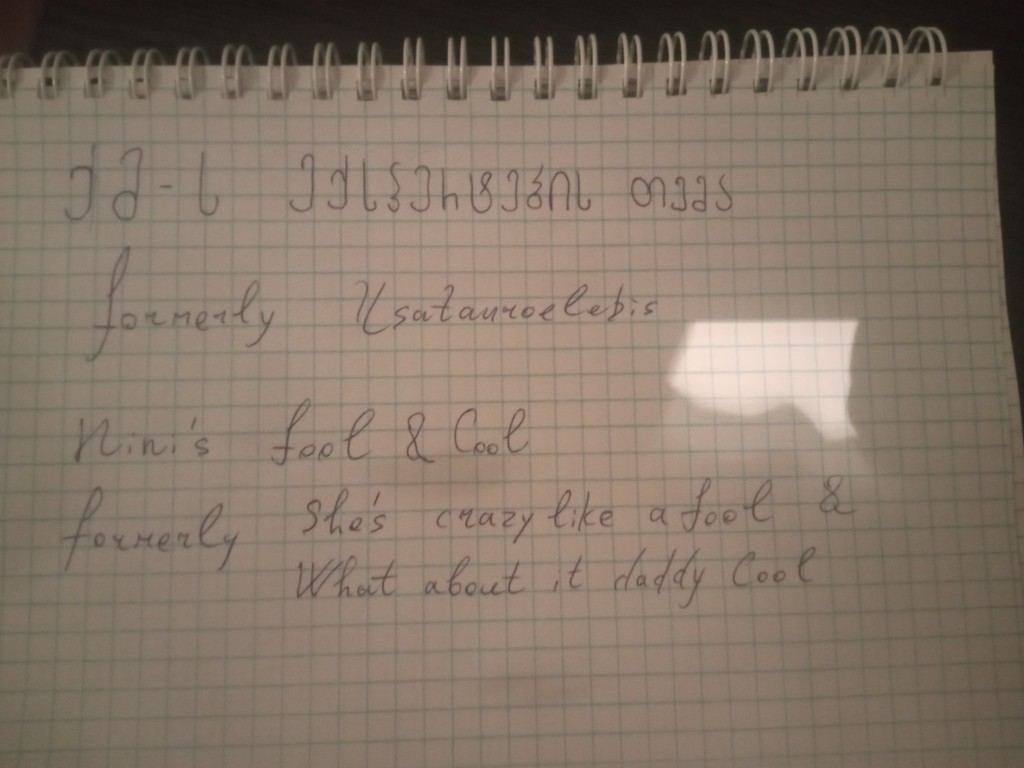 ექსპერტების თემა
formerly Usatauroelebis
Nini's fool & Cool
formerly She's crazy like a fool &
What about it daddy Cool